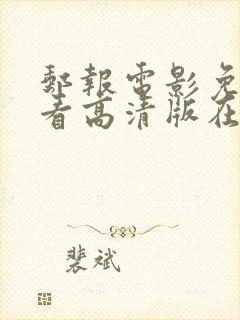 郵報電影免
看高清版在
裴斌